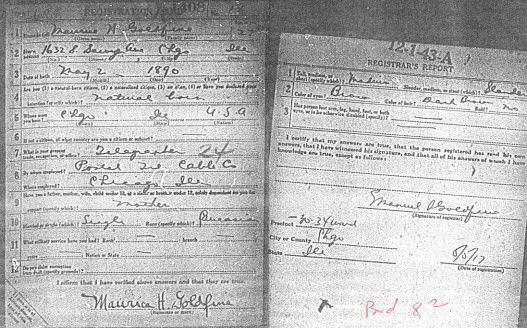 REGISTRATION
1 Name in full Maurice H Goldfine
(Given name) (Family name)
2 Home address 1632 S Sawyer Ave Chgo Ill
(No.) (Street) (City) (State)
3 Date of birth May 2 1890
(Month) (Day) (Year)
4 Are you (1) a natural-born citizen, (2) a naturalized citizen, (3) an alien, (4) or have you declared your
intention (specify which)? Natural born
5 Where were you born? Chgo Ill U.S.A
(Town) (State) (Nation)
6 If not a citizen, of what country are you a citizen or subject?
7 What is your present trade, occupation, or office? Telegrapher 24
8 By whom employed? Postal Tel Cable Co
Where employed? Chicago Ill
9 Have you a father, mother, wife, child under 12, or a sister or brother under 12, solely dependent on you for
support (specify which)? Mother
10 Married or single (which)? Single Race (specify which)? Caucasian
11 What military service have you had? Rank branch
years Nation or State
12 Do you claim exemption from draft (specify grounds)?
I affirm that I have verified above answers and that they are true.
Maurice H. Goldfine
(Signature or mark)
12-1-43-A
REGISTRAR'S REPORT
1 Tall, medium, or short (specify which)? Medium Slender, medium, or stout (which)? Slender
2 Color of eyes? Brown Color of hair? Dark Brown Bald? No
3 Has person lost arm, leg, hand, foot, or both eyes, or is he otherwise disabled (specify)?
I certify that my answers are true, that the person registered has read his own
answers, that I have witnessed his signature, and that all of his answers of which I have
knowledge are true, except as follows:
(Signature of registrar)
Precinct
City or County Chgo
State Ill 6/5/17
(Date of registration)